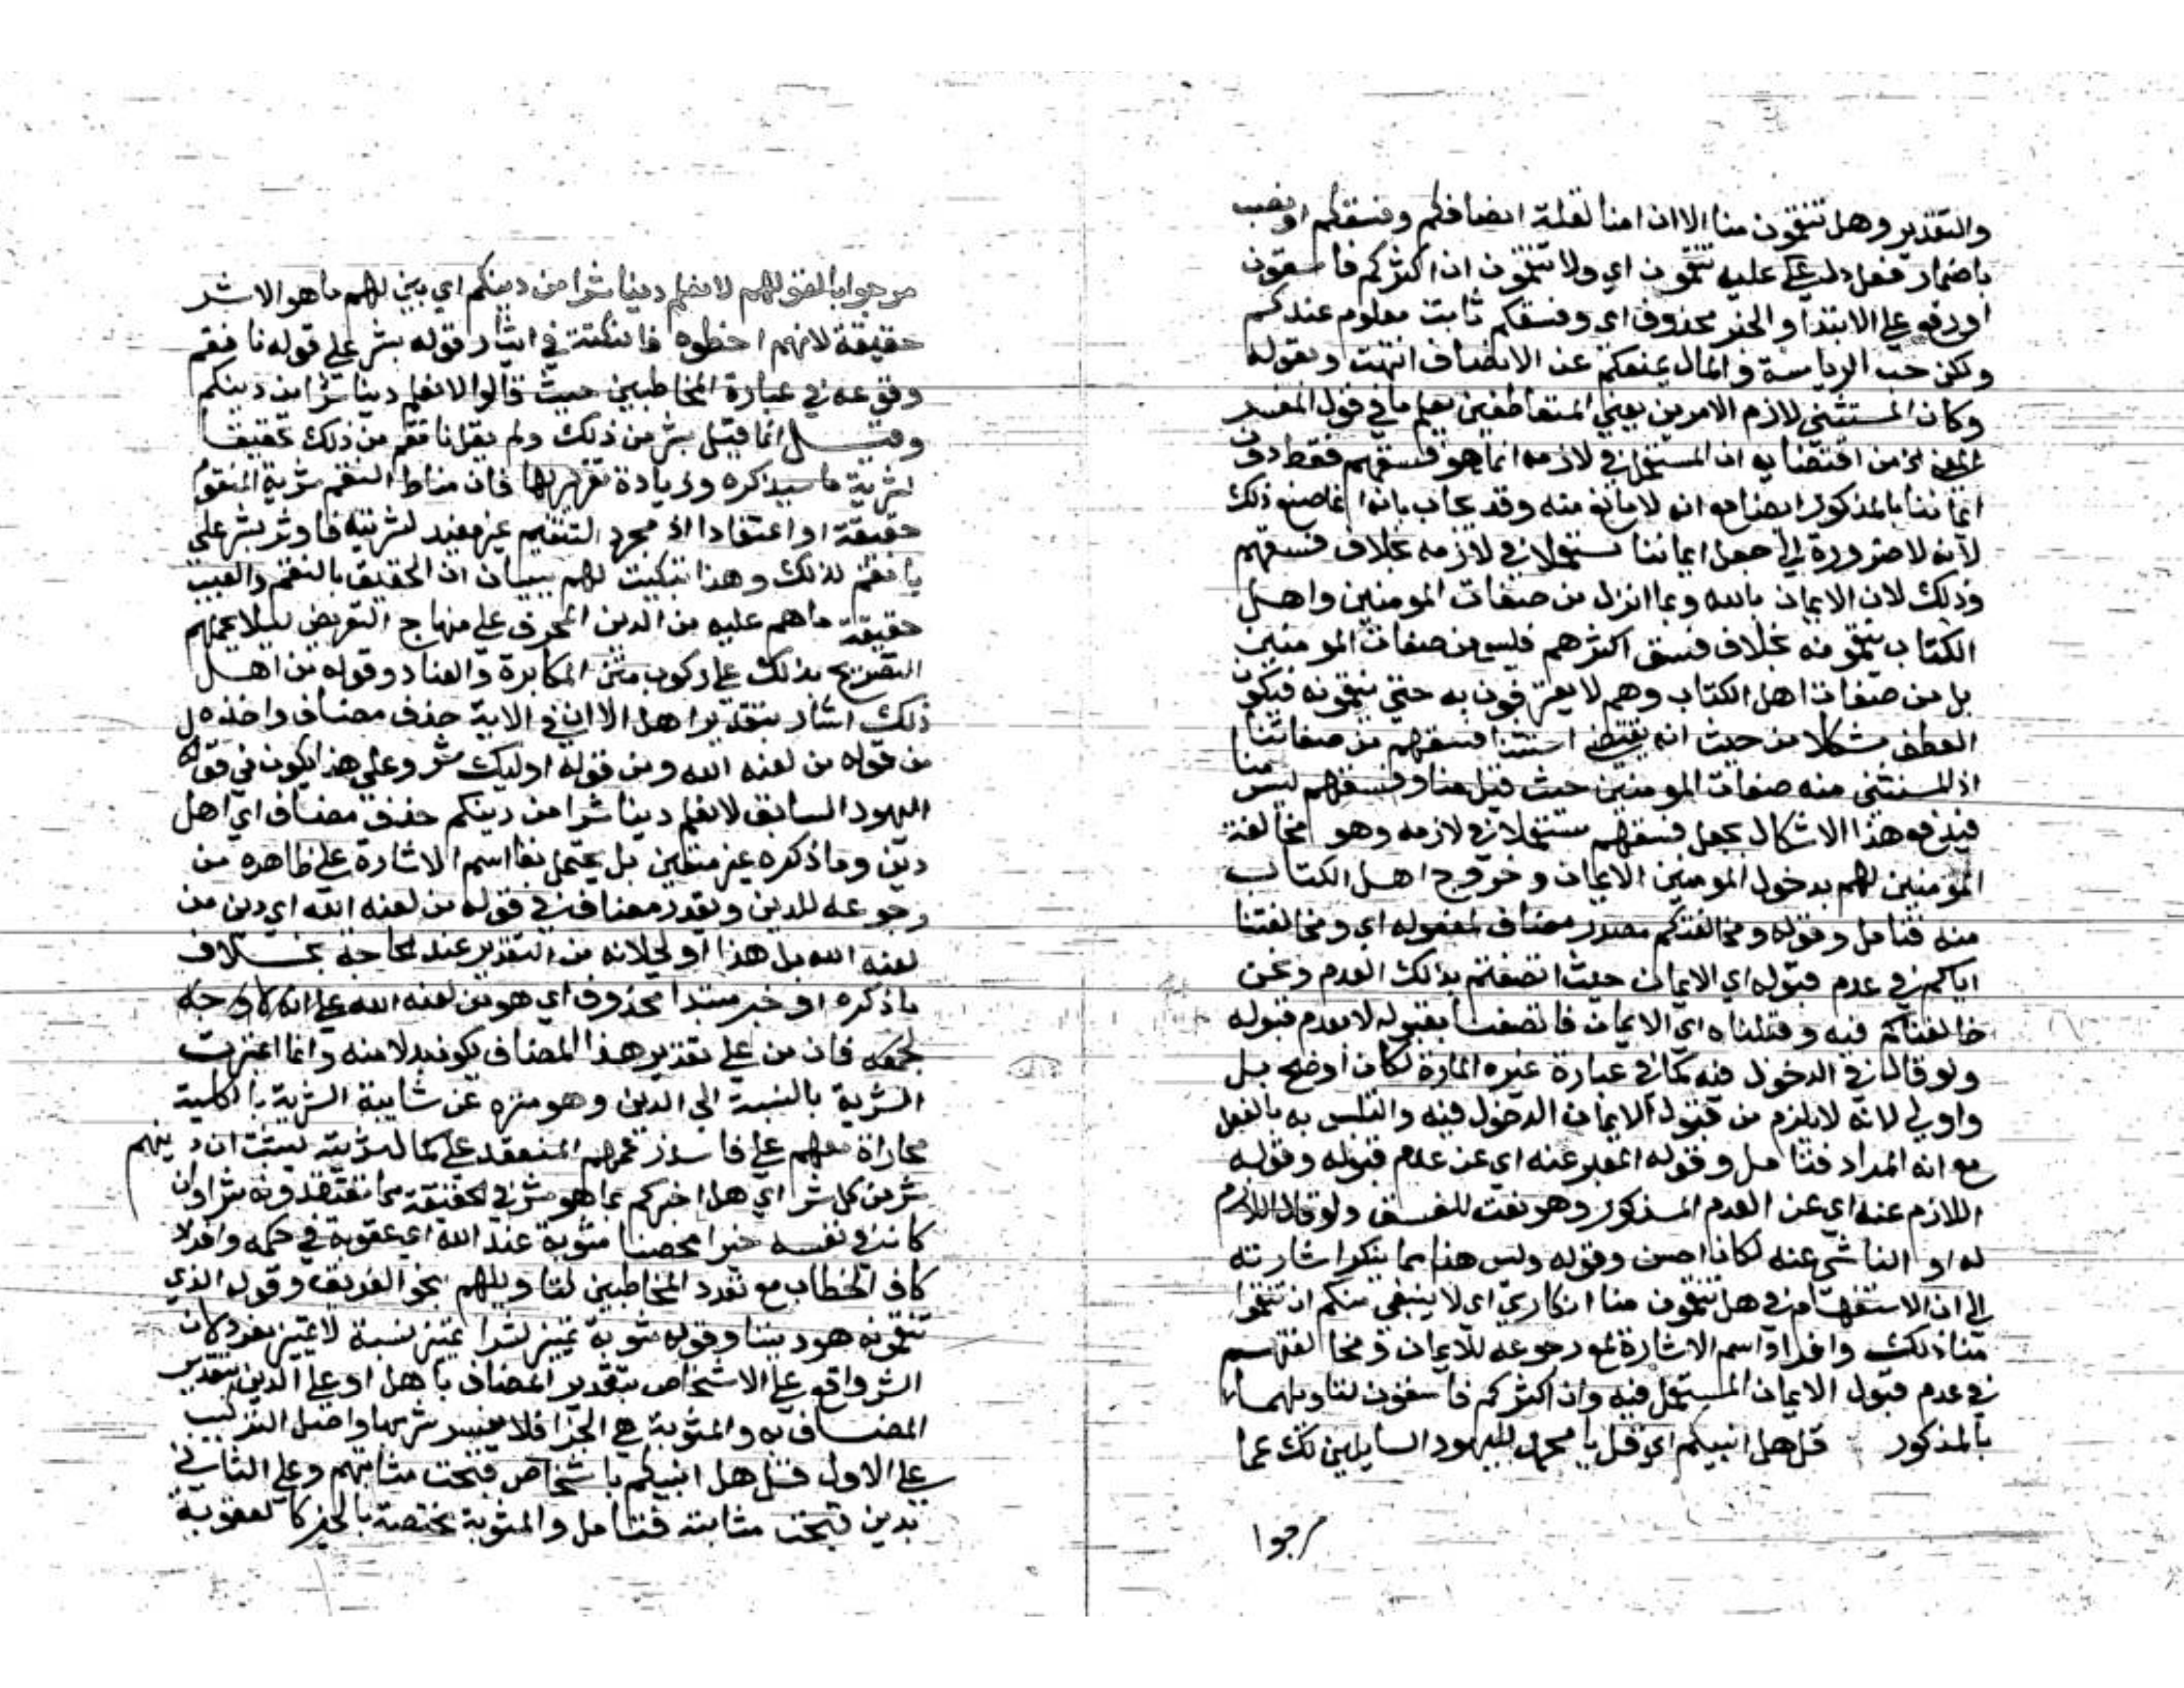 والتقدير وهل تنقمون منا الا ان امنا لقلة انصافكم وفسقكم او نصب
باضمار فعل دل عليه تنقمون اي ولا تنقمون ان اكثركم فاسقون
او رفع على الابتدا والخبر محذوف اي وفسقكم ثابت معلوم عندكم
ولكن حب الرياسة والمال يمنعكم عن الانصاف انتهت وبقوله
وكان المستثنى لازم الامرين يعني المتعاطفين يعلم ما في قول المفسر
من اقتضايه ان المستعمل في لازمه انما هو فسقهم فقط دون
ايماننا بالمذكور ايضا مع انه لا مانع منه وقد يجاب بانه انما صنع ذلك
لانه لا ضرورة الى جعل ايماننا مستعملا في لازمه بخلاف فسقهم
وذلك لان الايمان بالله وبما انزل من صفات المومنين واهل
الكتاب ينقمونه بخلاف فسق اكثرهم فليس من صفات المومنين
بل من صفات اهل الكتاب وهم لا يعترفون به حتى ينقمونه فيكون
العطف مشكلا من حيث انه يقتضي استثنا فسقهم من صفاتنا
اذ المستثنى منه صفات المومنين حيث قيل منا وفسقهم ليس منا
فيدفع هذا الاشكال بجعل فسقهم مستعملا في لازمه وهو مخالفة
المومنين لهم بدخول المومنين الايمان وخروج اهل الكتاب
منه فتامل وقوله ومخالفتكم مصدر مضاف لمفعوله اي ومخالفتنا
اياكم في عدم قبوله اي الايمان حيث اتصفتم بذلك العدم ونحن
خالفناكم فيه وقبلناه اي الايمان فاتصفنا بقبوله لا بعدم قبوله
ولو قال في الدخول فيه كما في عبارة غيره المارة لكان اوضح بل
واولى لانه لا يلزم من قبول الايمان الدخول فيه والتلبس به بالفعل
مع انه المراد فتامل وقوله المعبر عنه اي عن عدم قبوله وقوله
اللازم عنه اي عن العدم المذكور وهو نعت للفسق ولو قال اللازم
له او الناشي عنه لكان احسن وقوله وليس هذا مما ينكر اشارته
الى ان الاستفهام في هل تنقمون منا انكاري اي لا ينبغي منكم ان تنقموا
منا ذلك وافرد اسم الاشارة مع رجوعه للايمان ومخالفتهم
في عدم قبول الايمان المستعمل فيه وان اكثركم فاسقون لتاويلهما
بالمذكور قل هل انبيكم اي قل يا محمد لليهود السايلين لك عما
مر جوا
مر جوابا لقولهم لا نعلم دينا شرا من دينكم اي بين لهم ما هو الاشر
حقيقة لانهم اخطوه فالنكتة في ايثار قوله بشر على قوله بانقم
وقوعه في عبارة المخاطبين حيث قالوا لا نعلم دينا شرا من دينكم
وقيل انما قيل بشر من ذلك ولم يقل بانقم من ذلك تحقيقا
لشرية ما سيذكره وزيادة تقرير لها فان مناط النقم شرية المنقوم
حقيقة او اعتقادا اذ مجرد التنقيم غير مفيد لشريته فاوثر بشر على
بانقم لذلك وهذا تبكيت لهم ببيان ان الحقيق بالنقم والعيب
حقيقة ما هم عليه من الدين المحرف على منهاج التعريض ليلا يحملهم
التصريح بذلك على ركوب متن المكابرة والعناد وقوله من اهل
ذلك اشار بتقدير اهل الا ان في الاية حذف مضاف واخذه
من قوله من لعنه الله ومن قوله اوليك شر وعلى هذا يكون في قوله
اليهود السابق لا نعلم دينا شرا من دينكم حذف مضاف اي اهل
دين وما ذكره غير متعين بل يحتمل بقا اسم الاشارة على ظاهره من
رجوعه للدين ويقدر مضاف في قوله من لعنه الله اي دين من
لعنه الله بل هذا اولى لانه من التقدير عند الحاجة بخلاف
ما ذكره او خبر مبتدا محذوف اي هو من لعنه الله على انه
فان من على تقدير هذا المضاف يكون بدلا منه وانما اعتبرت
الشرية بالنسبة الى الدين وهو منزه عن شايبة الشرية بالكلية
مجاراة معهم على فاسد زعمهم المنعقد على كمال شريته ليثبت ان دينهم
شر من كل شر اي هل اخبركم بما هو شر في الحقيقة مما تعتقدونه شرا وان
كان في نفسه خيرا محضا مثوبة عند الله اي عقوبة في حكمه وافرد
كاف الخطاب مع تعدد المخاطبين لتاويلهم بنحو الفريق وقوله الذي
تنقمونه هو ديننا وقوله مثوبة تمييز لشرا تمييز نسبة لا تمييز مفرد كان
الشر واقع على الاشخاص بتقدير المضاف باهل او على الدين بتقدير
المضاف به والمثوبة هي الجزا فلا يفسر شر بها واصل التركيب
على الاول قل هل انبيكم باشخاص قبحت مثابتهم وعلى الثاني
بدين قبحت مثابته فتامل والمثوبة مختصة بالخير كالعقوبة